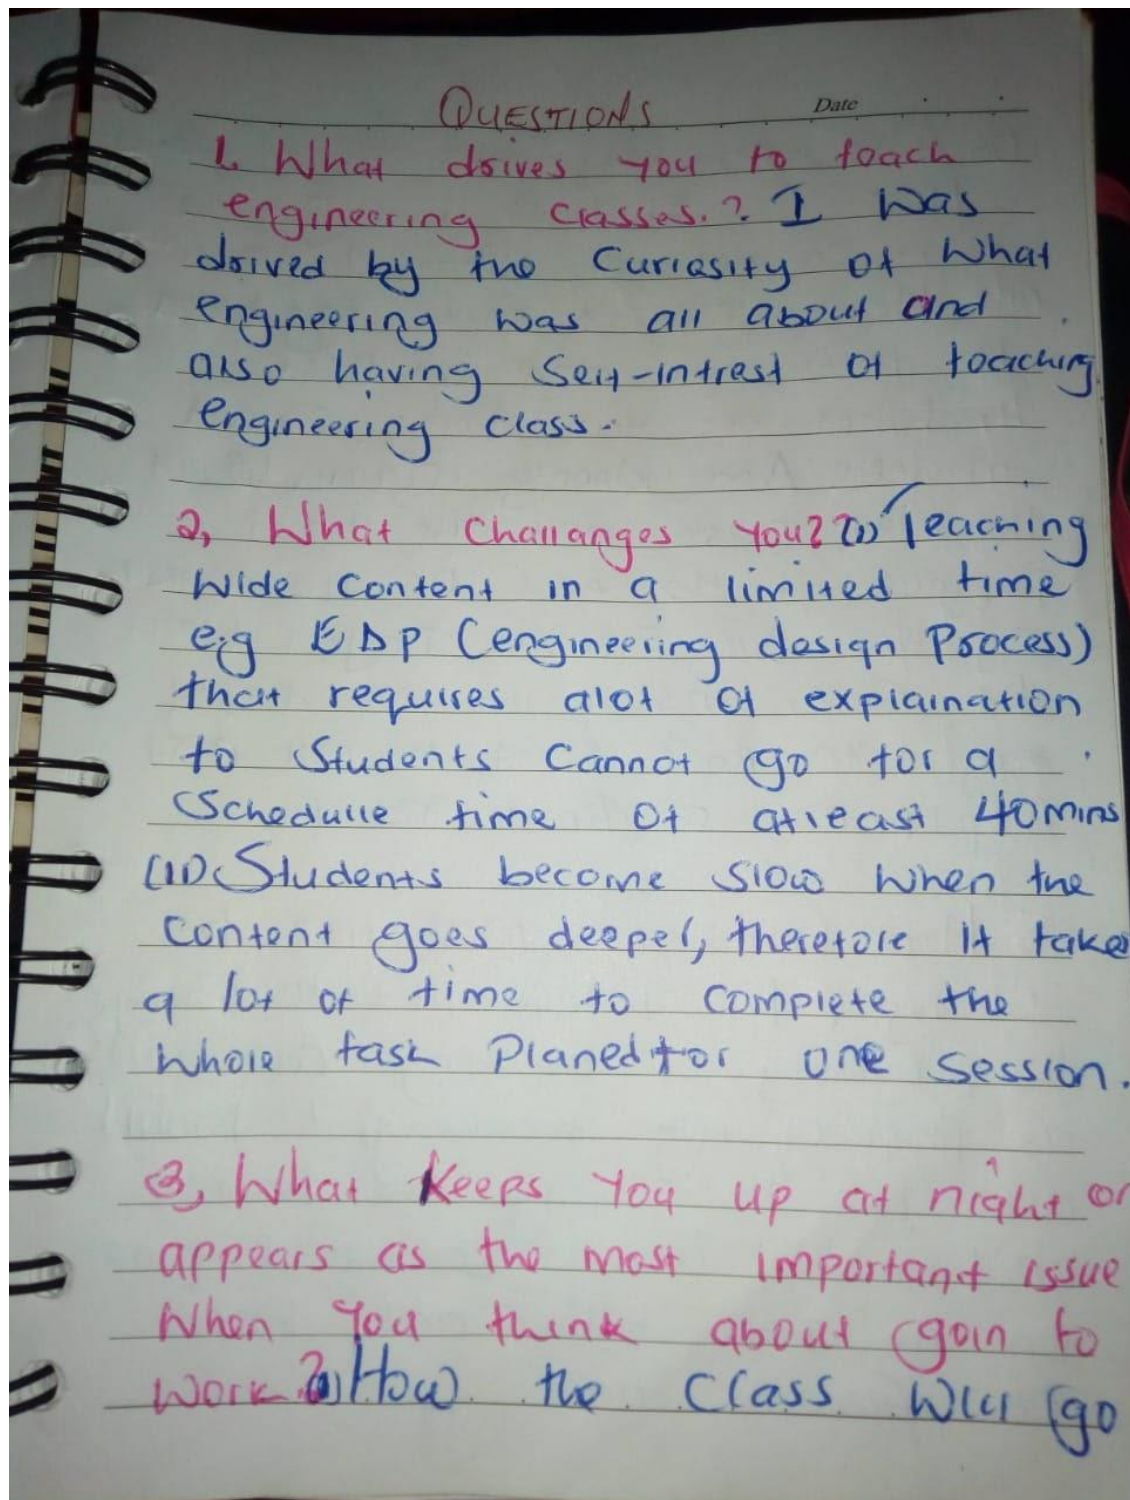 QUESTIONS Date
1. What drives you to teach
engineering classes.? I was
drived by the Curiosity of What
engineering was all about and
also having Self-intrest of teaching
engineering class.
2, What Challanges you? (i) Teaching
Wide Content in a limited time
e.g EDP (engineering design Process)
that requires alot of explaination
to Students Cannot go for a
Schedulle time of atleast 40mins
(ii) Students become Slow when the
Content goes deeper, therefore it take
a lot of time to complete the
whole task Planed for one session.
3, What Keeps You up at night or
appears as the most important issue
When You think about goin to
work? (i) How the Class will go